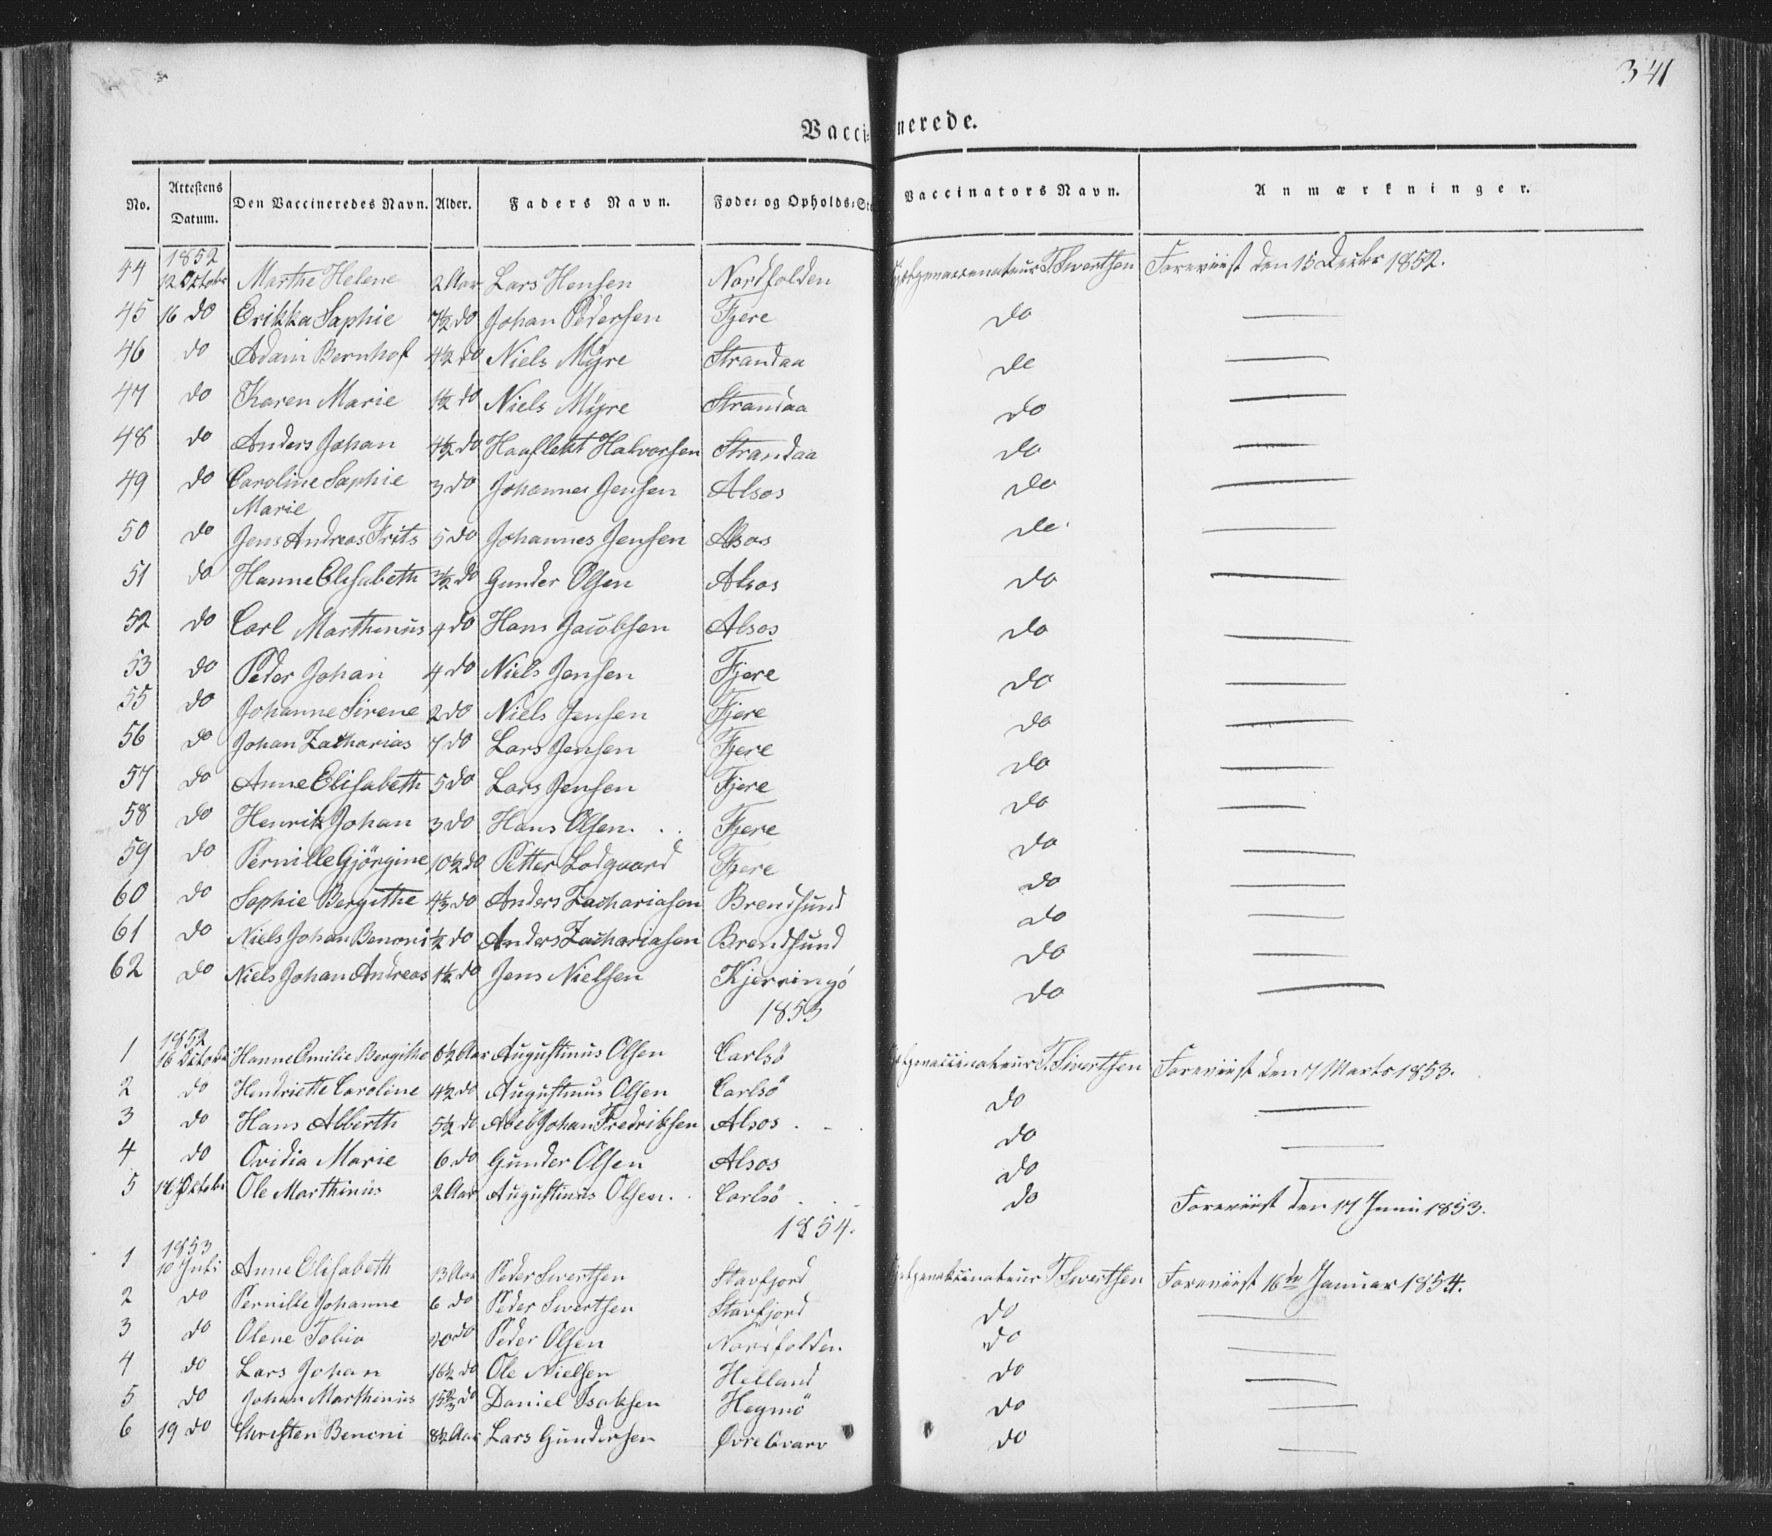 341
Vaccinerede.
No. Attestens Datum. Den Vaccineredes Navn. Alder. Faders Navn. Føde- og Opholds-Ste Vaccinators Navn. Anmærkninger.
1852
44 12 Octobr Marthe Helene 2 Aar Lars Hensen Nordfolden T. Swertsen Foreviist den 15 Decbr 1852.
45 16 do Erikka Saphie 7½ do Johan Pedersen Fjere do —
46 do Adam Bernhof 4½ do Niels Myre Strandaa do —
47 do Karen Marie 1½ do Niels Myre Strandaa do —
48 do Anders Johan 4½ do Halvorsen Strandaa do —
49 do Caroline Saphie Marie 3 do Johannes Jensen Alsos do —
50 do Jens Andreas Frits 5 do Johannes Jensen Alsos do —
51 do Hanne Elisabeth 3½ do Gunder Olsen Alsos do —
52 do Carl Marthinus 4 do Hans Jacobsen Alsos do —
53 do Peder Johan 4 do Niels Jensen Fjere do —
55 do Johanne Sirene 2 do Niels Jensen Fjere do —
56 do Johan Zacharias 7 do Lars Jensen Fjere do —
57 do Anne Elisabeth 5 do Lars Jensen Fjere do —
58 do Henrik Johan 3 do Hans Olsen Fjere do —
59 do Pernille Gjørgine 10½ do Petter Lodgaard Fjere do —
60 do Sophie Bergithe do Anders Zachariasen Brendsund do —
61 do Niels Johan Benoni ½ do Anders Zachariasen Brendsund do —
62 do Niels Johan Andreas 1½ do Jens Nielsen Kjerringø do —
1853
1852
1 16 Octobr Hanne Emilie Bergithe 6½ Aar Augustinus Olsen Carlsö T. Swertsen Foreviist den 7 Marts 1853.
2 do Hendriette Caroline 4½ do Augustinus Olsen Carlsö do —
3 do Hans Alberth 5½ do Johan Fredriksen Alsos do —
4 do Ovidia Marie 6 do Gunder Olsen Alsos do —
5 Octobr Ole Marthinus 2 Aar Augustinus Olsen Carlsö do Foreviist den 17 Juni 1853.
1854.
1853
1 10 Juli Anne Elisabeth 13 Aar Peder Swertsen Stavfjord T. Swertsen Foreviist 16de Januar 1854.
2 do Pernille Johanne 6 do Peder Swertsen Stavfjord do —
3 do Olene Tobia do Peder Olsen Nordfolden do —
4 do Lars Johan 16½ do Ole Nielsen Helland do —
5 do Johan Marthinus do Daniel Isaksen Hegmö do —
6 19 do Christen Benoni 8½ Aar Lars Gundersen Øvre Qvarv do —